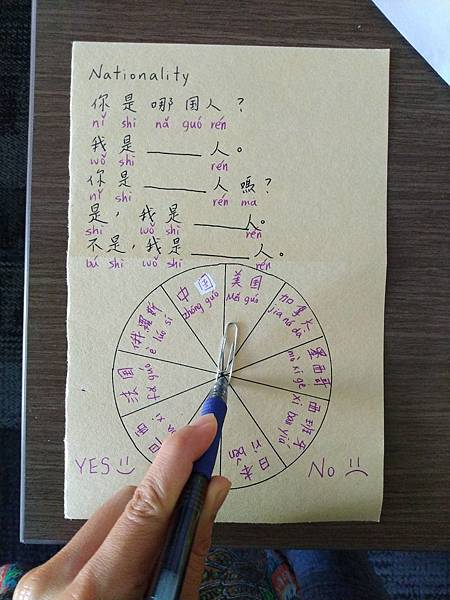 Nationality
你是哪国人？
nǐ shì nǎ guó rén
我是____人。
wǒ shì rén
你是____人嗎？
nǐ shì rén ma
是，我是____人。
shì wǒ shì rén
不是，我是____人。
bú shì wǒ shì rén
中国
zhōng guó
美国
Měi guó
加拿大
jiā ná dà
墨西哥
mò xī gē
西班牙
xī bān yá
日本
rì běn
西
xī
法国
fǎ guó
俄羅斯
é luó sī
YES
NO